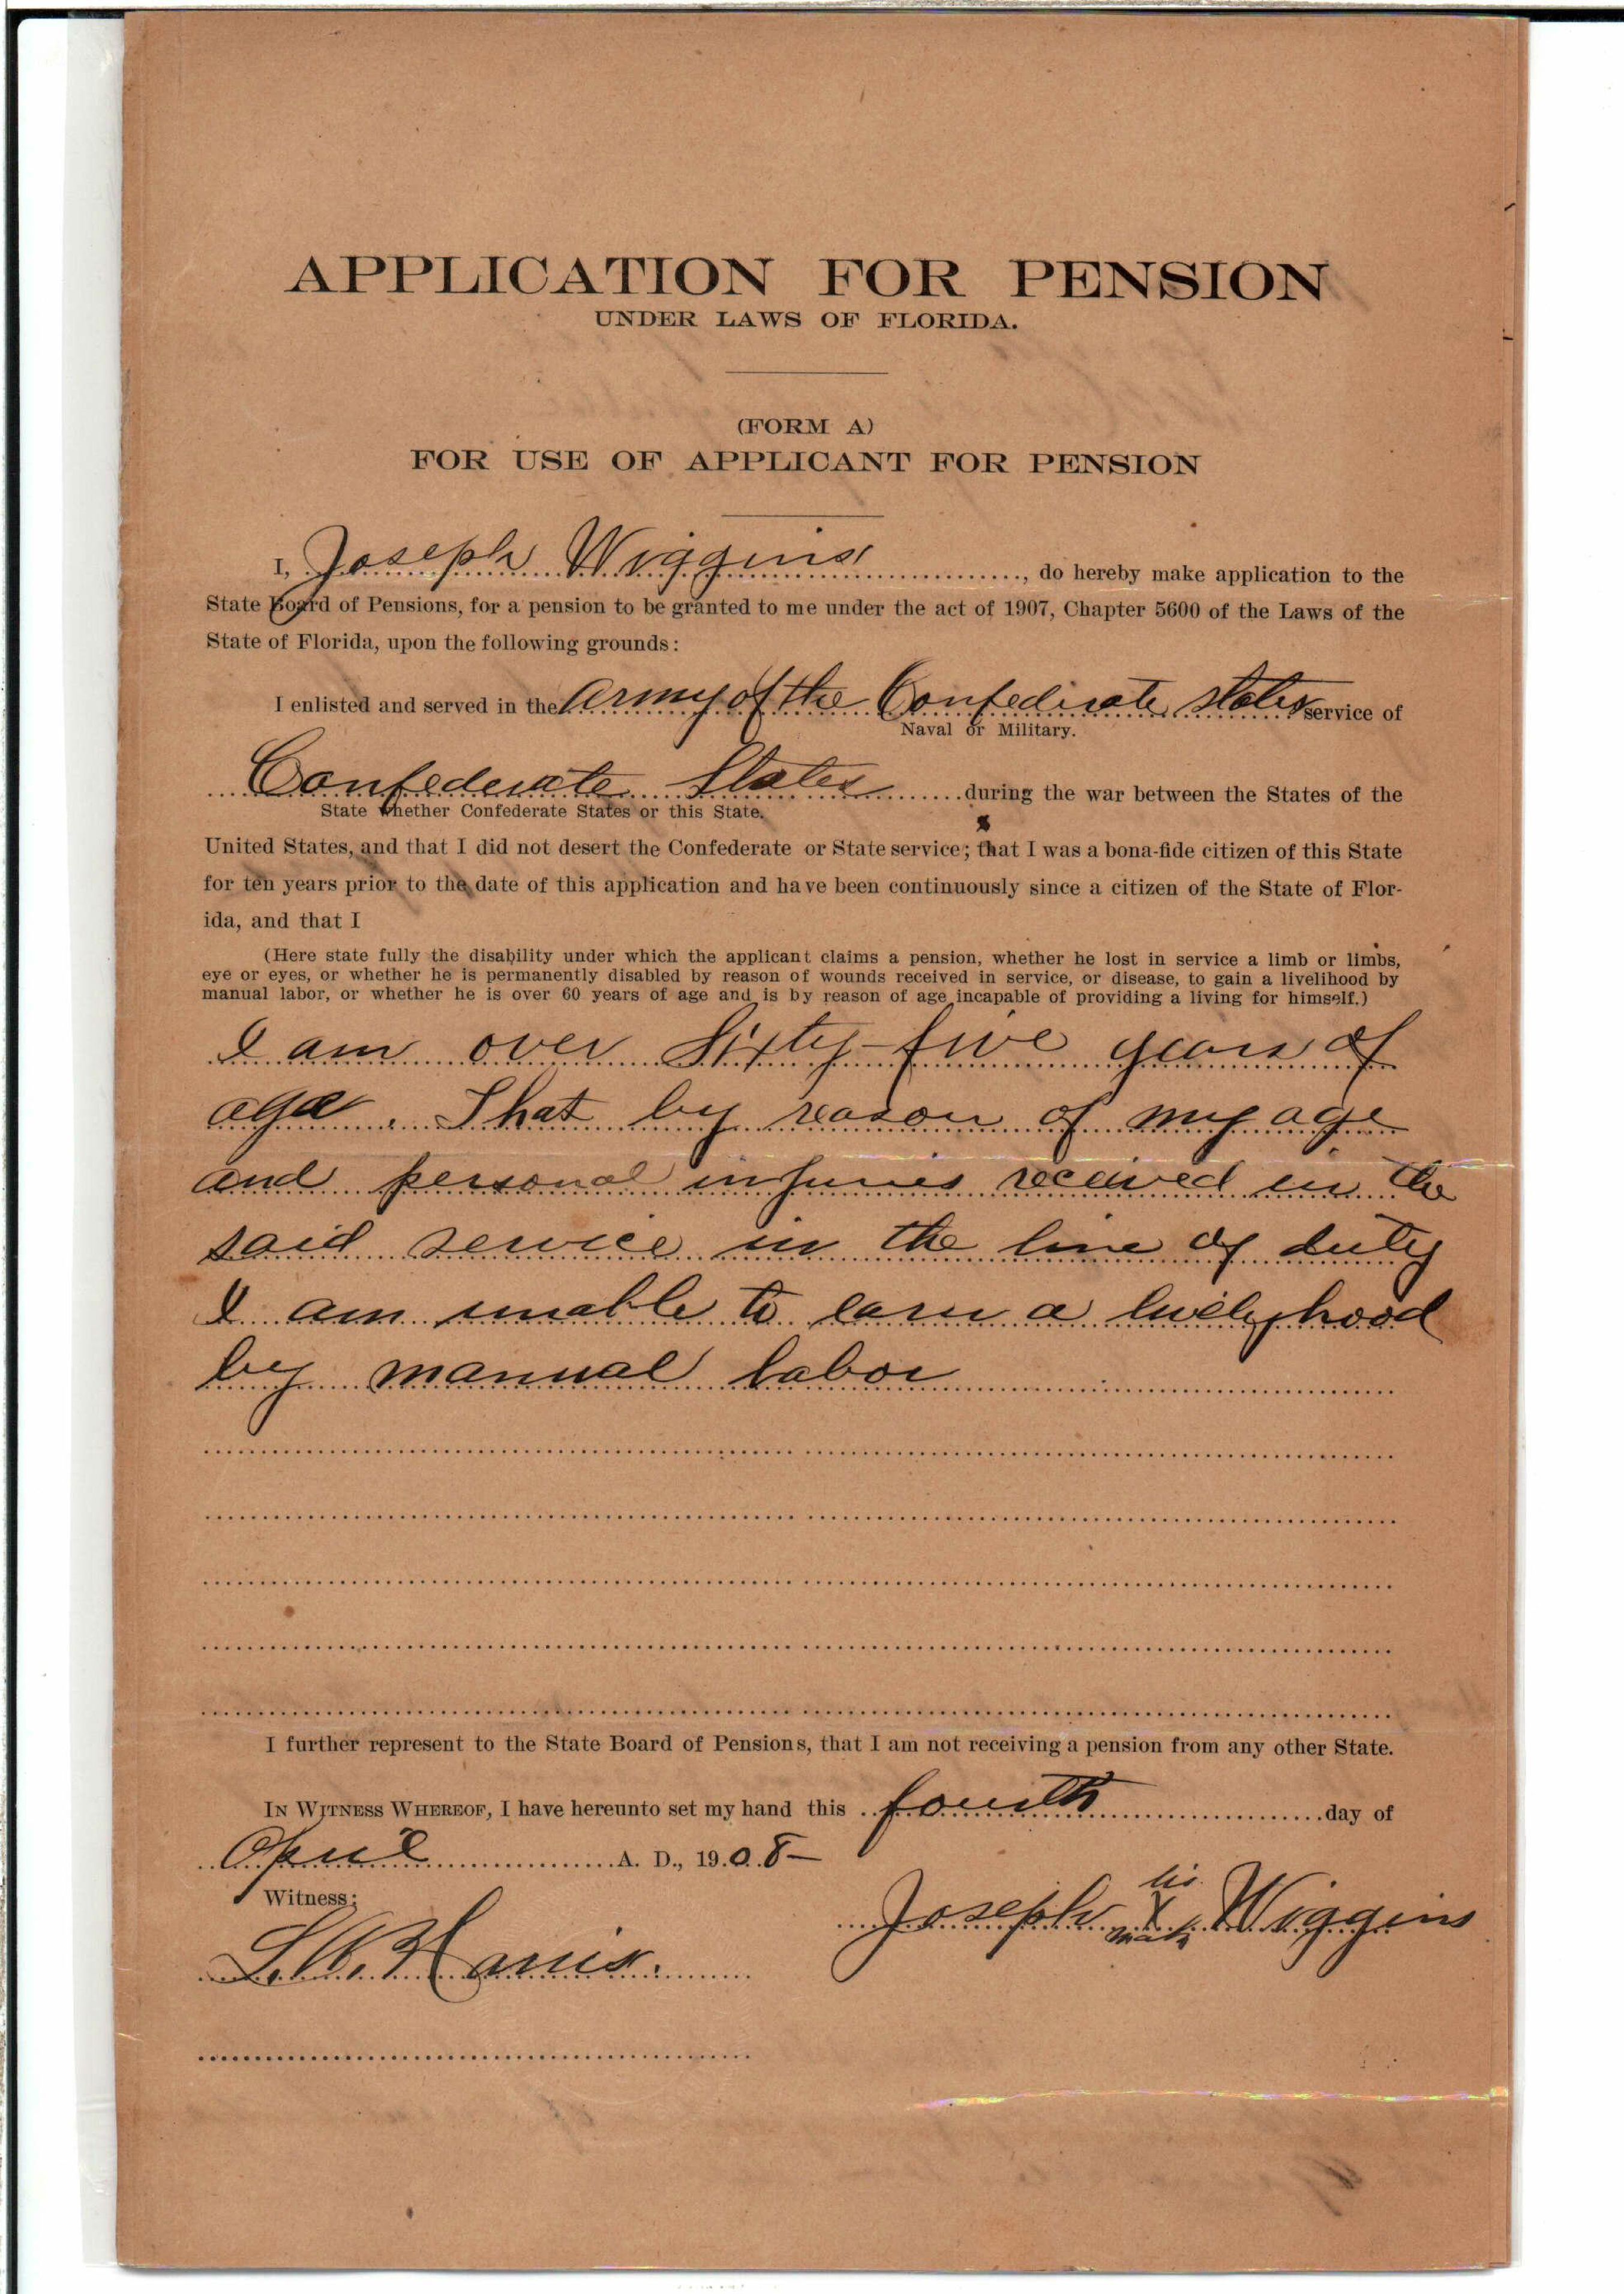 APPLICATION FOR PENSION
UNDER LAWS OF FLORIDA.
(FORM A)
FOR USE OF APPLICANT FOR PENSION
I, Joseph Wiggins, do hereby make application to the
State Board of Pensions, for a pension to be granted to me under the act of 1907, Chapter 5600 of the Laws of the
State of Florida, upon the following grounds:
I enlisted and served in the Army of the Confederate States service of
Naval or Military.
Confederate States during the war between the States of the
State whether Confederate States or this State.
United States, and that I did not desert the Confederate or State service; that I was a bona-fide citizen of this State
for ten years prior to the date of this application and have been continuously since a citizen of the State of Flor-
ida, and that I
(Here state fully the disability under which the applicant claims a pension, whether he lost in service a limb or limbs,
eye or eyes, or whether he is permanently disabled by reason of wounds received in service, or disease, to gain a livelihood by
manual labor, or whether he is over 60 years of age and is by reason of age incapable of providing a living for himself.)
I am over Sixty-five years of
age. That by reason of my age
and personal injuries received in the
said service in the line of duty
I am unable to earn a livelyhood
by manual labor
I further represent to the State Board of Pensions, that I am not receiving a pension from any other State.
IN WITNESS WHEREOF, I have hereunto set my hand this fourth day of
April A. D., 1908-
Witness:
his
Joseph X Wiggins
mark
L. W. Harris.